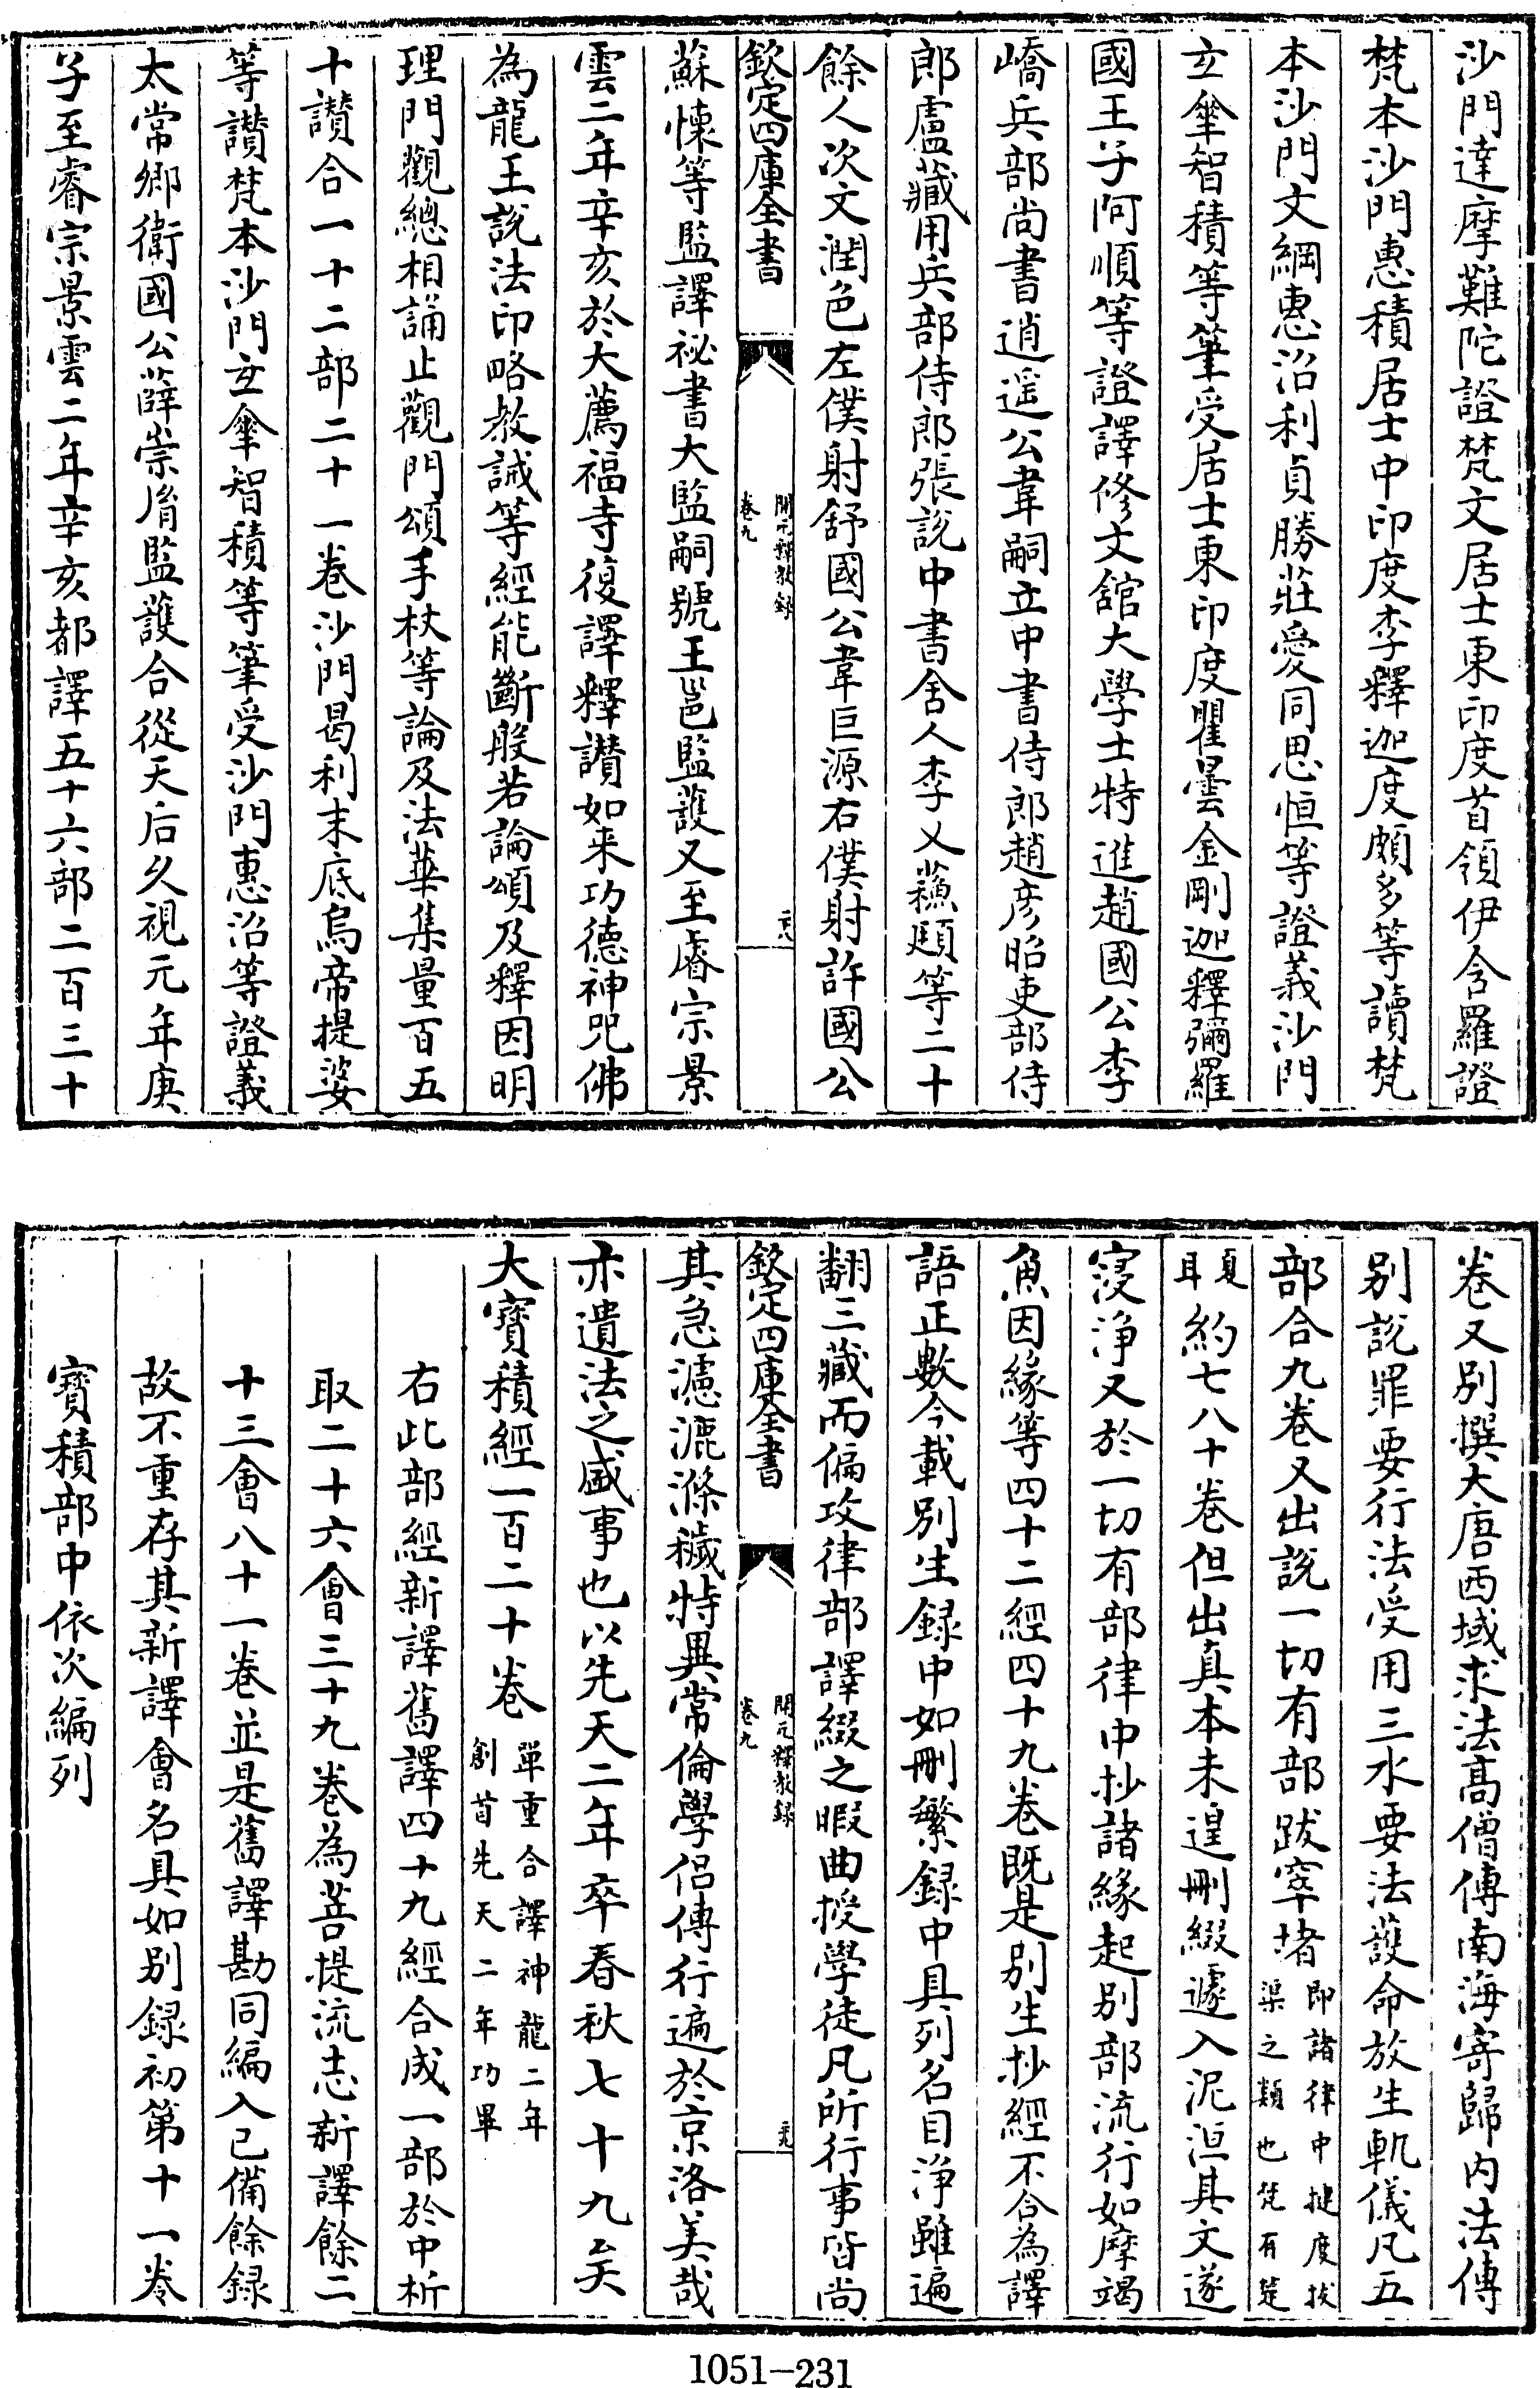 沙門達摩難陀證梵文居士東印度首領伊舍羅證
梵本沙門惠積居士中印度李釋迦度頗多等讀梵
本沙門文綱惠沼利貞勝莊愛同思恒等證義沙門
玄傘智積等筆受居士東印度瞿曇金剛迦釋彌羅
國王子阿順等證譯修文館大學士特進趙國公李
嶠兵部尚書逍遥公韋嗣立中書侍郎趙彦昭吏部侍
郎盧藏用兵部侍郎張說中書舍人李乂蘓頲等二十
餘人次文潤色左僕射舒國公韋巨源右僕射許國公
欽定四庫全書
開元釋教録
卷九
二八
蘇懐等監譯祕書大監嗣號王邕監護又至睿宗景
雲二年辛亥於大薦福寺復譯釋讃如來功德神咒佛
為龍王說法印略教誡等經能斷般若論頌及釋因明
理門觀總相誦止觀門頌手杖等論及法華集量百五
十讃合一十二部二十一卷沙門曷利末底烏帝提婆
等讃梵本沙門玄傘智積等筆受沙門惠沼等證義
太常卿衛國公薛崇脩監護合從天后久視元年庚
子至睿宗景雲二年辛亥都譯五十六部二百三十
卷又别撰大唐西域求法髙僧傳南海寄歸内法傳
别説罪要行法受用三水要法護命放生軌儀凡五
部合九卷又出説一切有部跋窣堵即諸律中揵度跋
渠之類也梵有楚
夏
耳約七八十卷但出真本未遑刪綴遽入泥洹其文遂
寖浄又於一切有部律中抄諸緣起别部流行如摩竭
魚因緣等四十二經四十九卷既是别生抄經不合為譯
語正數今載别生録中如刪繁録中具列名目浄雖遍
翻三藏而偏攻律部譯綴之暇曲授學徒凡所行事皆尚
欽定四庫全書
開元釋教録
卷九
二九
其急濾漉滌穢特異常倫學侣傳行遍於京洛美哉
亦遺法之盛事也以先天二年卒春秋七十九矣
大寳積經一百二十卷單重合譯神龍二年
創首先天二年功畢
右此部經新譯舊譯四十九經合成一部於中析
取二十六會三十九卷為菩提流志新譯餘二
十三會八十一卷並是舊譯勘同編入已備餘録
故不重存其新譯會名具如别録初第十一卷
寳積部中依次編列
1051-231